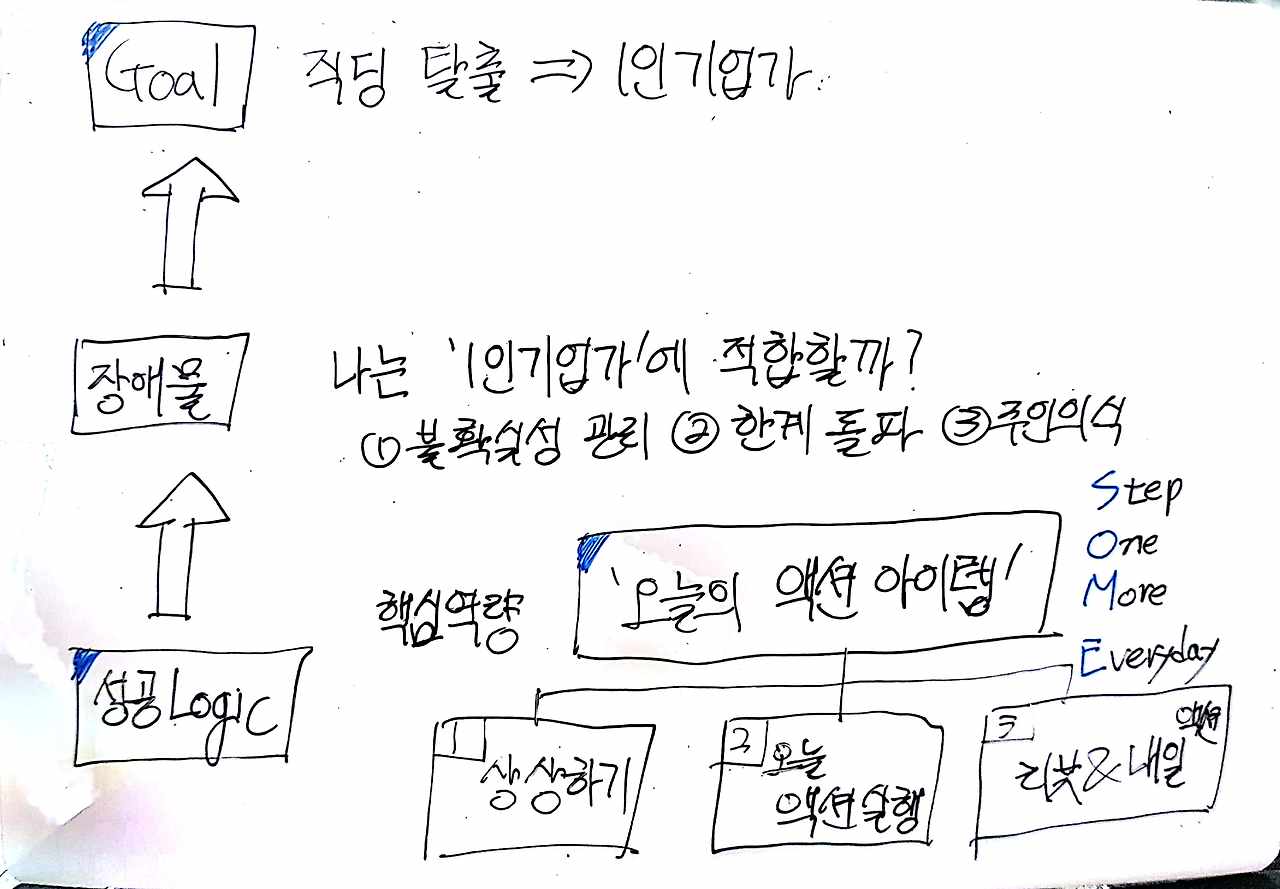 Goal 직딩 탈출 => 1인기업가
장애물 나는 '1인기업가'에 적합할까?
① 불확실성 관리 ② 한계 돌파 ③ 주인의식
Step
One
More
Everyday
핵심역량 '오늘의 액션 아이템'
성공Logic
1 상상하기
2 오늘
액션실행
3 액션
리붓&내일